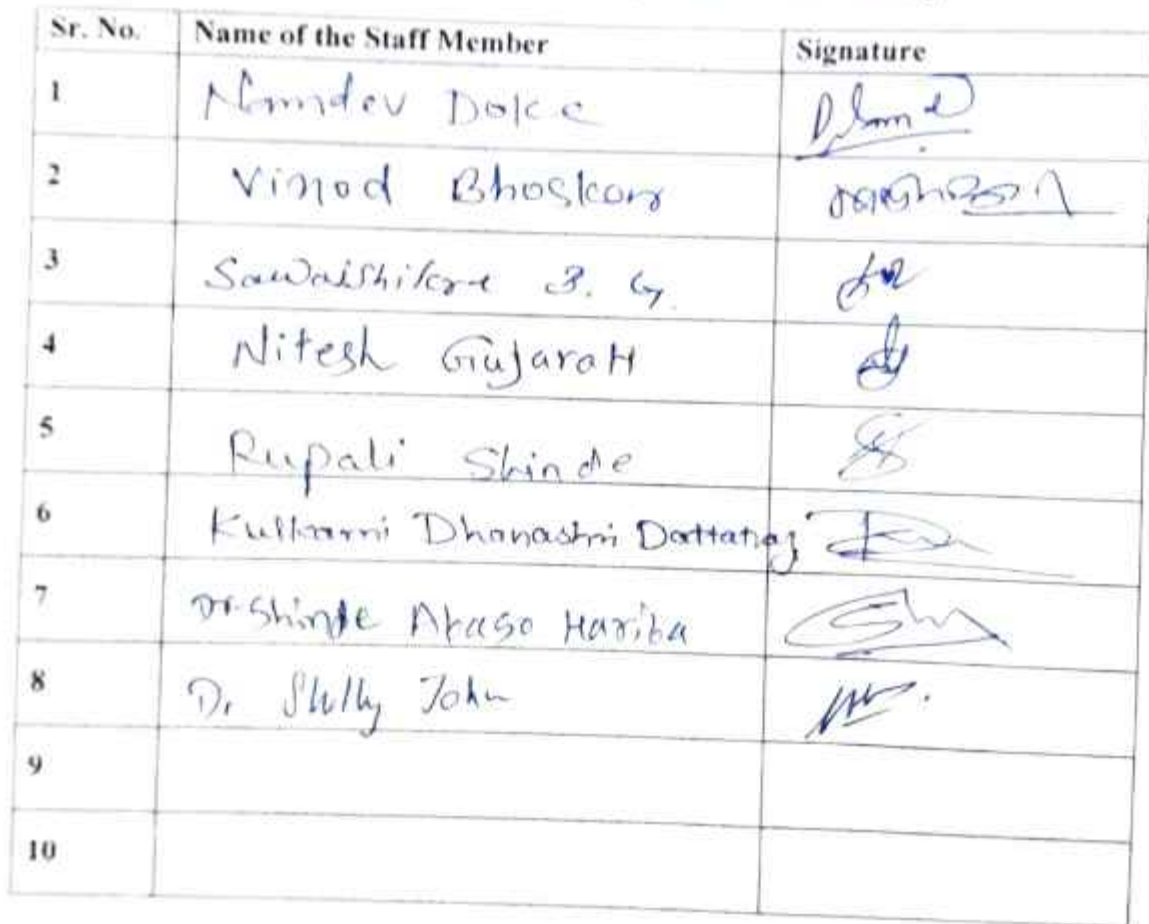 Sr. No. Name of the Staff Member Signature
1 Namdev Doke
2 Vinod Bhoskar
3 Sawaishikre J. G.
4 Nitesh Gujarati
5 Rupali Shinde
6 Kulkarni Dhanashri Dattatraj
7 Dr. Shinde Akaso Hariba
8 Dr Shelly John
9
10